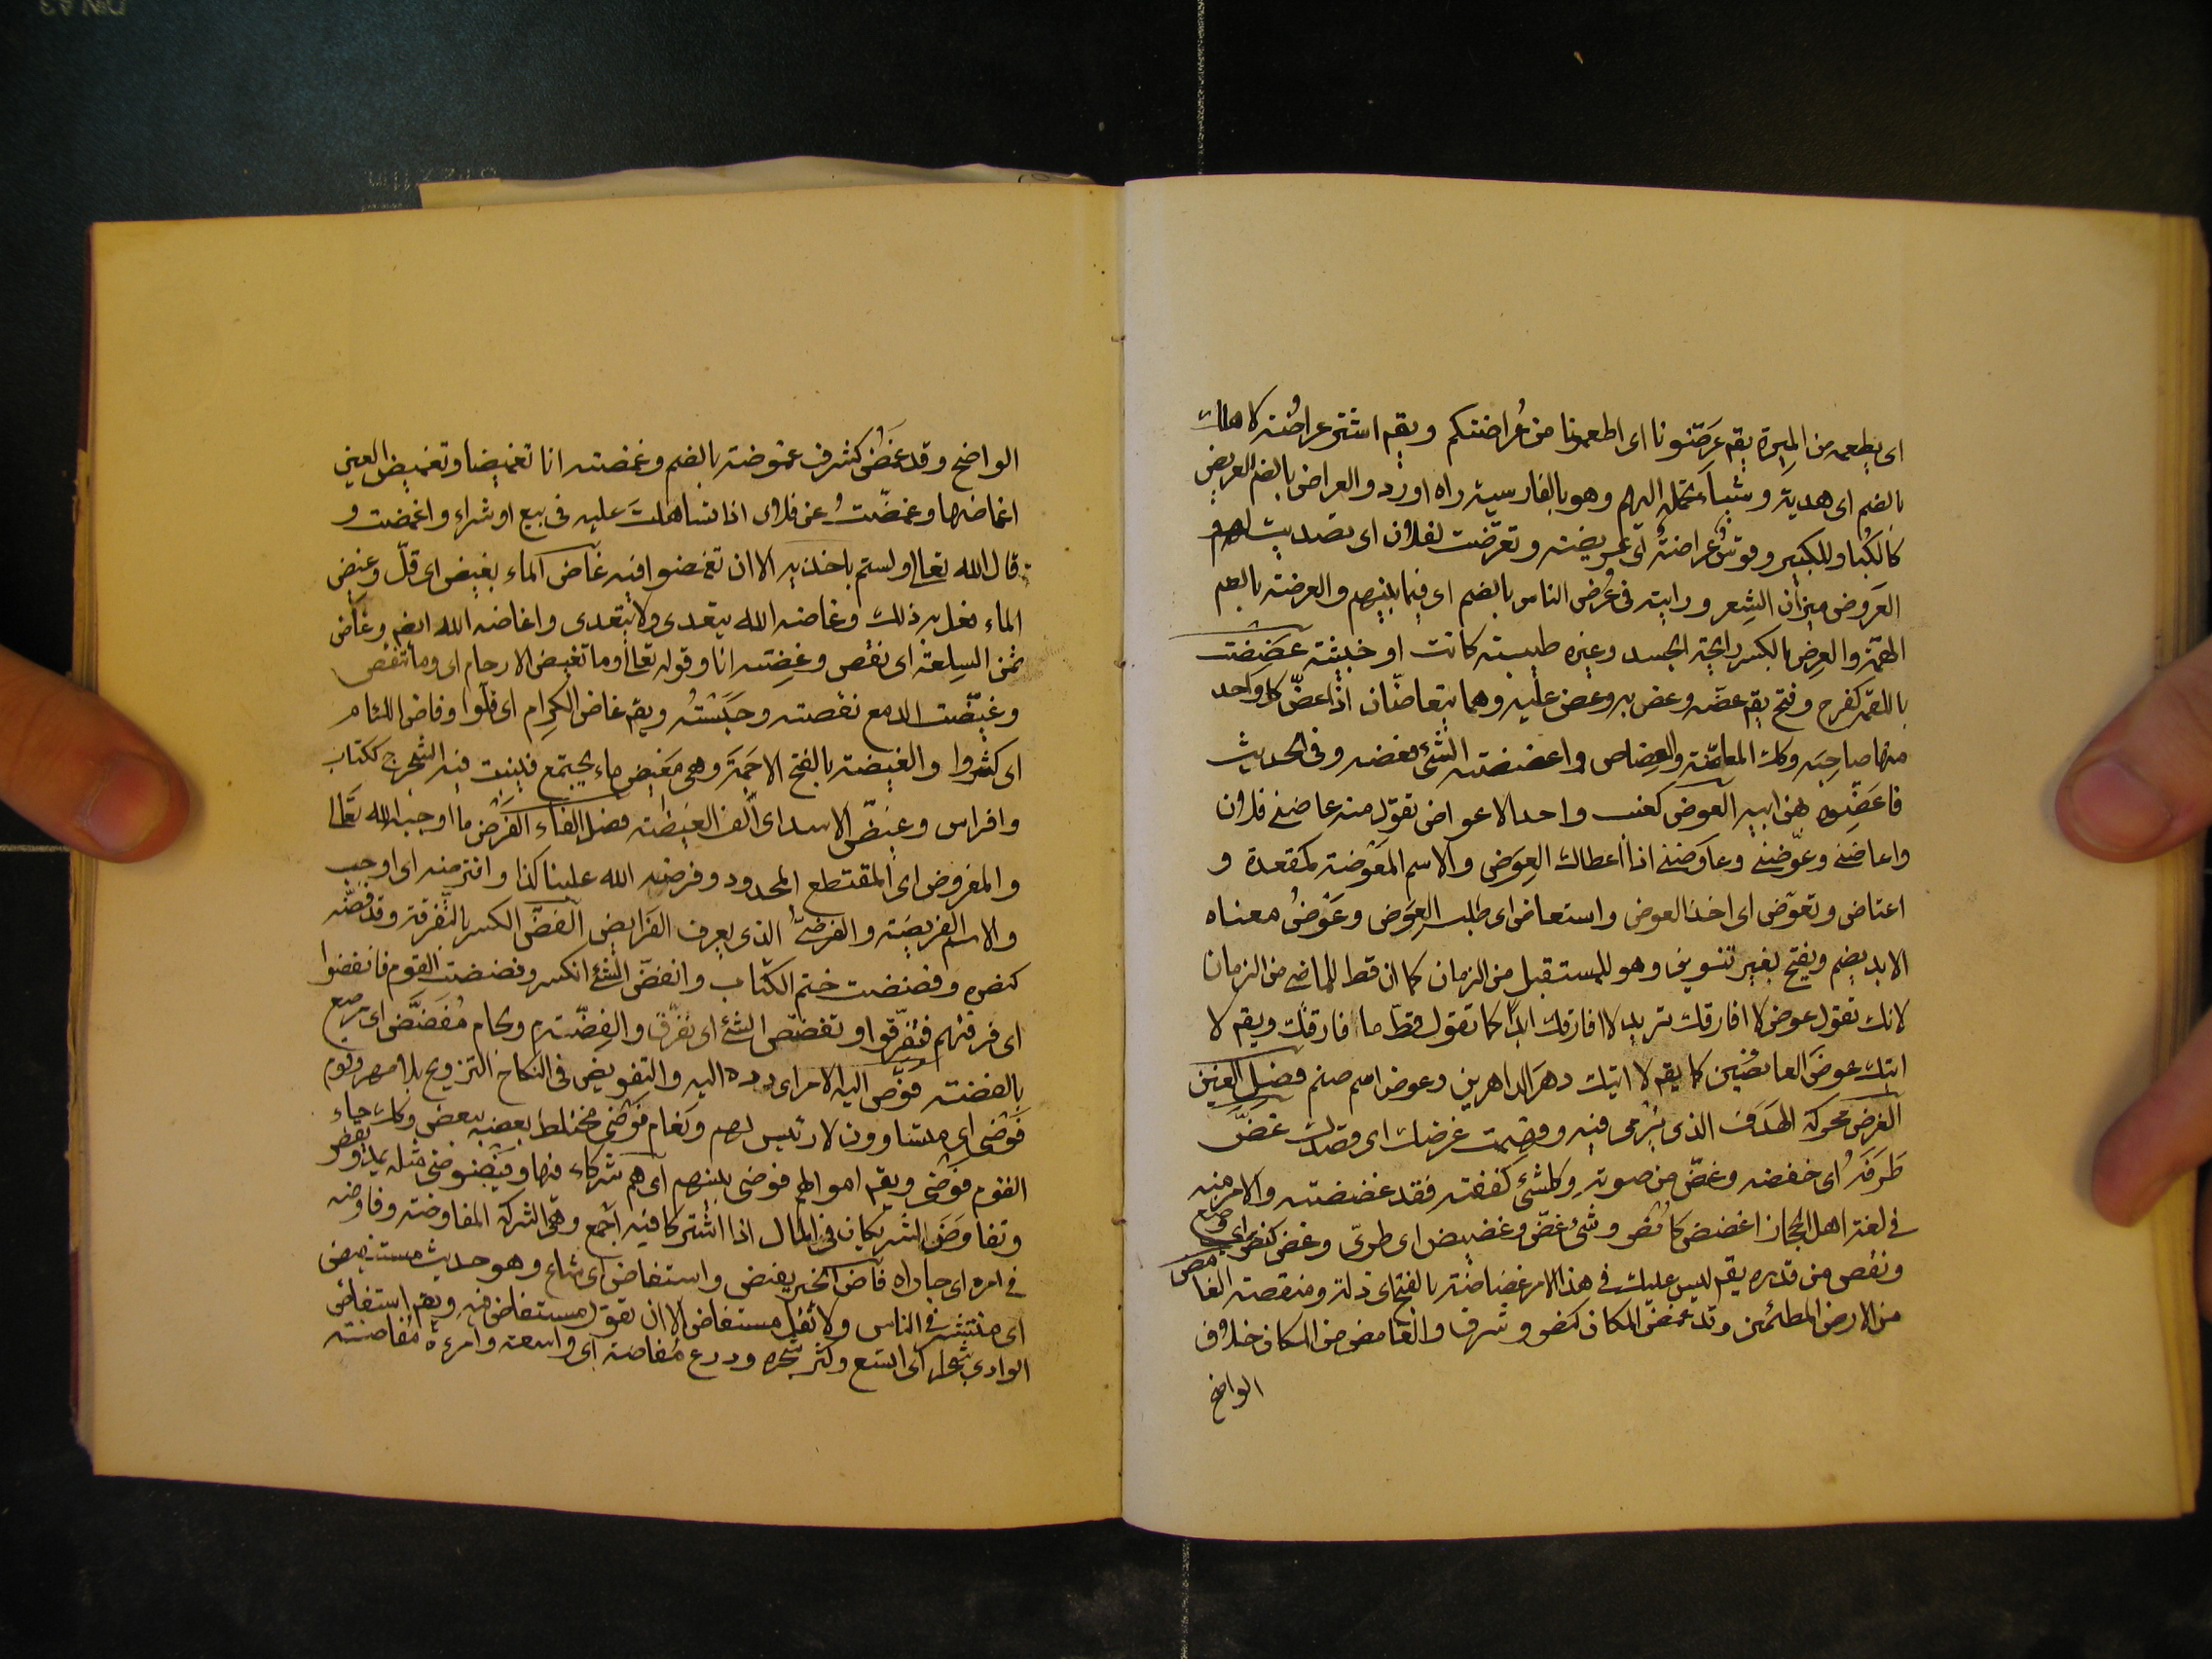 اى يطعمه من الميرة يقم عرضونا اى اطعمونا من عُراضتكم ويقم اشتر عراضة لاهلك
بالضم اى هدية وشياء تحمله اليهم وهو بالفارسية راه اورد والعراض بالضم العريض
كالكبار للكبير وقوس عراضة اى عريضة وتعرّضت لفلان اى تصديت لهم
العَروض ميزان الشِعر ورايته فى عُرض الناس بالضم اى فيما بينهم والعرضة بالضم
الهمّة والعِرض بالكسر رائحة الجسد وغيره طيبة كانت او خبيثة عَضِضت
باللقمة كفرح وفتح يقم عضّه وعض به وعض عليه وهما يتعاضّان اذا عضّ كل واحد
منهما صاحبَه وكك المعاضّة والعِضاض واعضضته الشئ فعضه وفى الحديث
فاعَضّوه بهن ابيه العوض كعنب واحد الاعواض تقول منه عاضنى فلان
واعاضنى وعوّضنى وعاوضنى اذا اعطاك العِوَض والاسم المَعُوضة كمقعدة و
اعتاض وتعوّض اى اخذ العوض واستعاض اى طلب العِوَض وعَوضُ معناه
الابد يضم ويفتح بغير تنوين وهو للمستقبل من الزمان كما ان قط للماضى من الزمان
لانك تقول عوض لا افارقك تريد لا افارقك ابدًا كما تقول قطّ ما فارقتك ويقم لا
اتيك عوضَ العائضين كما يقم لا اتيك دهرَ الداهرين وعوض اسم صنم فصل الغين
الغرض محركة الهَدَف الذى يُرمى فيه وفهمت غرضك اى قصدك غضّ
طَرفَهُ اى خفضه وغضّ من صوته وكلشئ كففته فقد غضضته والامر منه
فى لغة اهل الحجاز اغضض كانصر وشئ غضّ وغضيض اى طرىّ وغض كنصر اى وضع
ونقص من قدره يقم ليس عليك فى هذا الامر غضاضة بالفتح اى ذلة ومنقصة الغامض
من الارض المطمئن وقد غمض المكان كنصر وشرف والغامض من المكان خلاف
الواضح
الواضح وقد غمَض كشرف غموضة بالضم وغمضته انا تغميضا وتغميض العين
اغماضها وغمّضتُ عن فلان اذا تساهلت عليه فى بيع او شراء واغمضت و
قال الله تعالى ولستم باخذيه الا ان تغمضوا فيه غاض الماء يغيض اى قلّ وغيض
الماء فعل به ذلك وغاضه الله يتعدى ولا يتعدى واغاضه الله ايضم وغاض
ثمن السِلعة اى نقص وغِضته انا وقوله تعالى وما تغيض الارحام اى وما تنقص
وغيّضت الدمع نقصته وحبَسْتُه ويقم غاض الكرام اى قلّوا وفاض اللئام
اى كثروا والغيضة بالفتح الاجَمَة وهى مَغيض ماء يجتمع فينبت فيه الشجر ج ككتاب
وافراس وغيّض الاسد اى الف الغيضة فصل الفاء الفَرْض ما اوجبه الله تعالى
والمفروض اى المقتطع المحدود وفرض الله علينا كذا وافترضه اى اوجب
والاسم الفريضة والفرضىّ الذى يعرف الفرايض الفضّ الكسر بالتفرقة وقد فضّه
كنصره وفضضت ختم الكتاب وانفضّ الشئ انكسر وفضضت القوم فانفضوا
اى فرقتهم فتفرّقوا وتفضّض الشئ اى تفرّق والفضّة م ولجام مُفَضَّض اى مرصع
بالفضة فوّض اليه الامر اى ردّه اليه والتفويض فى النكاح التزويج بلا مهر وقوم
فَوضى اى متساوون لا رئيس لهم ونَعام فَوضى مختلط بعضه ببعض وكك جاء
القوم فوضى ويقم اموالهم فوضى بينهم اى هم شركاء فيها وفيضوضى مثله يمد ويقصر
وتفاوض الشريكان فى المال اذا اشتركا فيه اجمع وهى الشركة المفاوضة وفاوضه
فى امره اى جاراه فاض الخبر يفيض واستفاض اى شاع وهو حديث مستفيض
اى منتشر فى الناس ولا تقل مستفاض الا ان تقول مستفاض فيه ويقم استفاض
الوادى شجرا اى اتسع وكثر شجره ودرع مُفاضة اى واسعة وامرءة مُفاضة